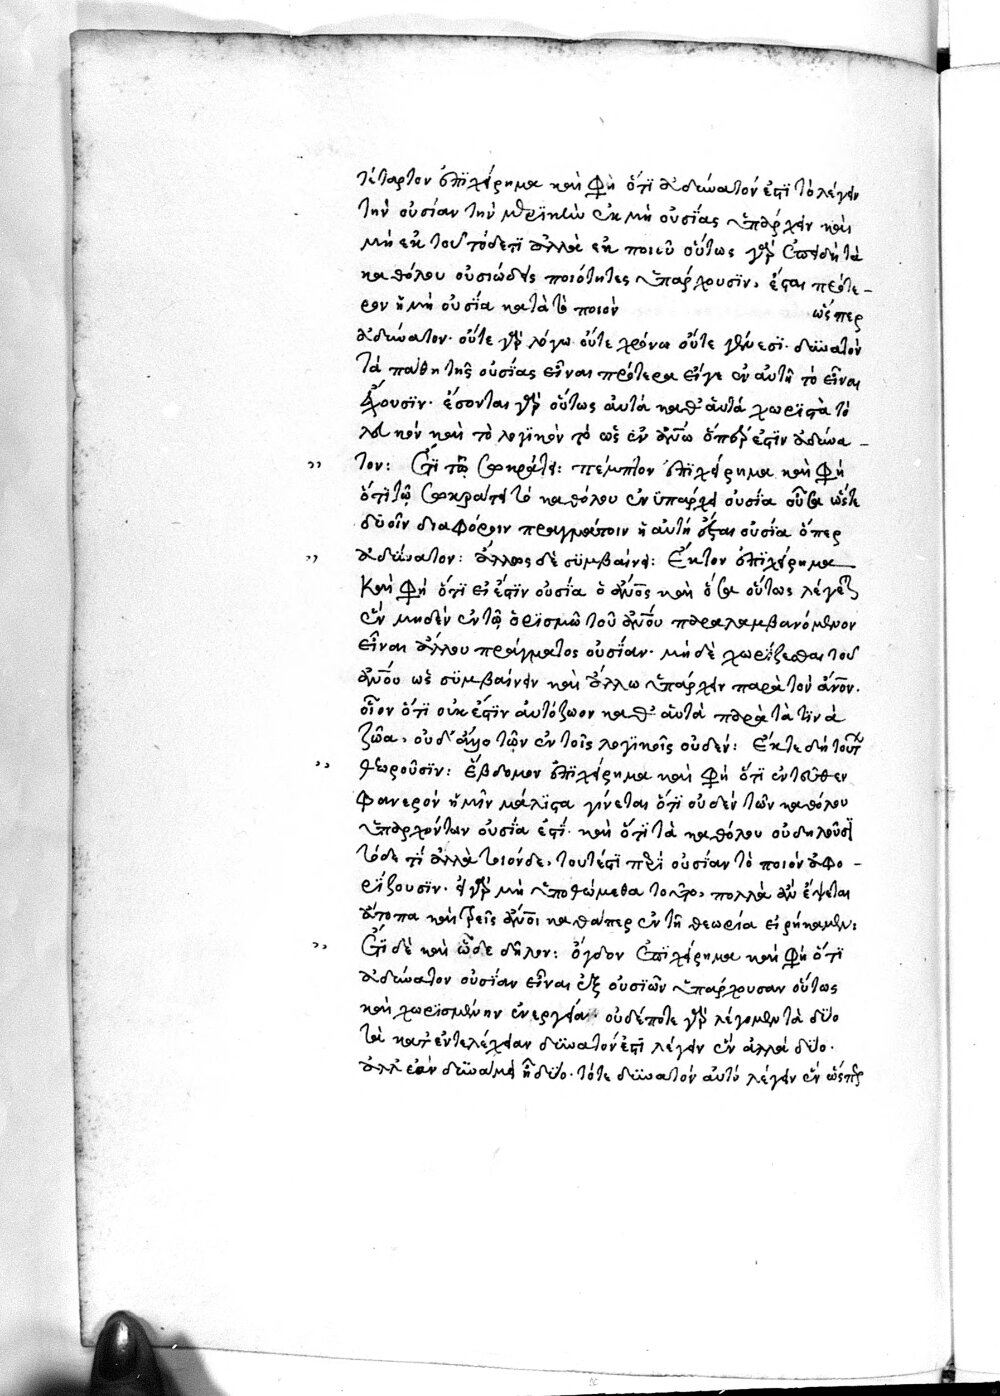 τέταρτον ἐπιχείρημα καὶ φὴ ὅτι ἀδύνατόν ἐστι τὸ λέγειν
τὴν οὐσίαν τὴν μερικὴν ἐκ μὴ οὐσίας ὑπάρχειν καὶ
μὴ ἐκ τοῦ τόδε τι ἀλλὰ ἐκ ποιοῦ οὕτως γὰρ ἐπειδὴ τὰ
καθόλου οὐσιώδεις ποιότητες ὑπάρχουσιν, ἔσται πρότε-
ρον ἡ μὴ οὐσία κατὰ τὸ ποιὸν ὥσπερ
ἀδύνατον· οὔτε γὰρ λόγω οὔτε χρόνω οὔτε γενέσει· δυνατὸν
τὰ πάθη τῆς οὐσίας εἶναι πρότερα εἴγε ἐν αὐτῆ τὸ εἶναι
ἔχουσιν· ἔσονται γὰρ οὕτως αὐτὰ καθ' αὑτὰ χωριστὰ τὸ
λευκὸν καὶ τὸ λογικὸν τὸ ὡς ἐν ἀνω ὅπερ ἐστὶν ἀδύνα-
,, τον: Ἔτι τῶ Σωκράτει: πέμπτον ἐπιχείρημα καὶ φὴ
ὅτι τῶ Σωκράτει τὸ καθόλου ἐνυπάρχει οὐσία οὖσα ὥστε
δυοῖν διαφόροιν πραγμάτοιν ἡ αὐτὴ ἔσται οὐσία ὅπερ
,, ἀδύνατον: ἄλλως δὲ συμβαίνει: Ἕκτον ἐπιχείρημα
καὶ φὴ ὅτι εἰ ἔστιν οὐσία ὁ ἀνος καὶ ὅσα οὕτως λέγεται
ἓν μηδὲν ἐν τῶ ὁρισμῶ τοῦ ἀνου παραλαμβανόμενον
εἶναι ἄλλου πράγματος οὐσίαν· μὴ δὲ χωρίζεσθαι τοῦ
ἀνου ὡς συμβαίνειν καὶ ἄλλω ὑπάρχειν παρὰ τὸν ἀνον·
οἷον ὅτι οὐκ ἔστιν αὐτόζωον καθ' αὑτὰ παρὰ τὰ τινὰ
ζῶα, οὐδ' ἄλλο τῶν ἐν τοῖς λογικοῖς οὐδέν: Ἔκ τε δὴ τούτων
,, θεωροῦσιν: ἕβδομον ἐπιχείρημα καὶ φὴ ὅτι ἐντεῦθεν
φανερὸν ἡμῖν μάλιστα γίνεται ὅτι οὐδὲν τῶν καθόλου
ὑπαρχόντων οὐσία ἐστί· καὶ ὅτι τὰ καθόλου οὐ δηλοῦσι
τόδε τι ἀλλὰ τοιόνδε, τουτέστι περὶ οὐσίαν τὸ ποιὸν ἀφο-
ρίζουσιν· εἰ γὰρ μὴ ὑποθώμεθα τοῦτο, πολλὰ ἂν ἕψεται
ἄτοπα καὶ τρεῖς ἀνοι καθάπερ ἐν τῆ θεωρία εἰρήκαμεν:
,, Ἔτι δὲ καὶ ὧδε δῆλον: ὄγδοον ἐπιχείρημα καὶ φὴ ὅτι
ἀδύνατον οὐσίαν εἶναι ἐξ οὐσιῶν ὑπάρχουσαν οὕτως
καὶ χωρισμένην ἐνεργεία· οὐδέποτε γὰρ λέγομεν τὰ δύο
τὰ κατ' ἐντελέχειαν δυνατὸν ἐστι λέγειν ἓν ἀλλὰ δύο·
ἀλλ' ἐὰν δυνάμει ἦ δύο· τότε δυνατὸν αὐτὸ λέγειν ἓν ὥσπερ